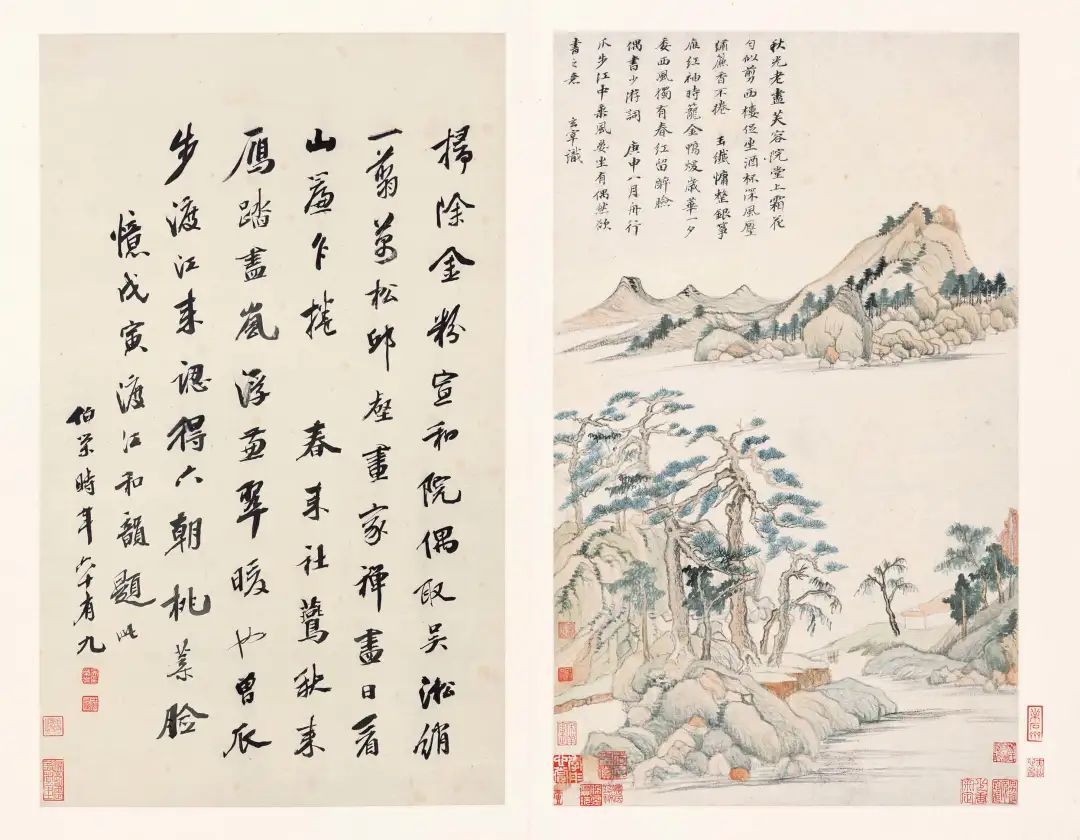 秋光老盡芙容院堂上霜花
勻似剪西樓促坐酒杯深風壓
繡簾香不捲 玉纖慵整銀箏
雁紅袖時籠金鴨煖歲華一夕
委西風獨有春紅留醉臉
偶書少游詞 庚申八月舟行
瓜步江中乘風晏坐有偶然欲
書之意 玄宰識
掃除金粉宣和院偶取吳淞綃
一翦萬松邱壑畫家禪盡日看
山簾乍捲 春來社鷰秋來
鴈踏盡嵐浮翠暖也曾瓜
步渡江來認得六朝桃葉臉
憶戊寅渡江和韻題此
伯榮時年六十有九